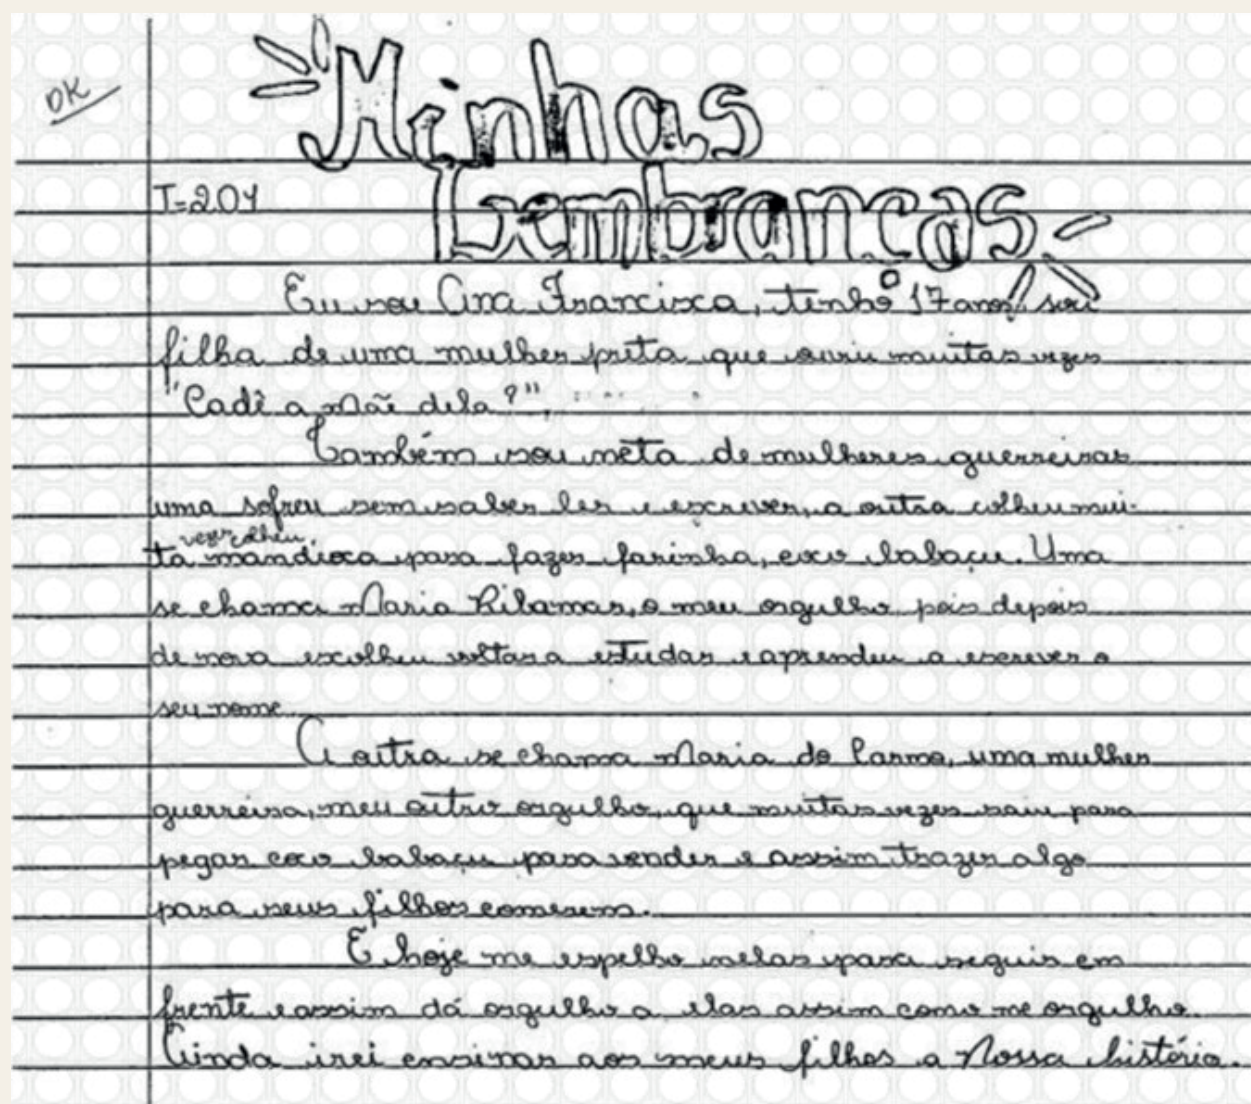 OK
Minhas
T=204
Lembranças
Eu sou Ana Francisca, tenho 17 anos, sou
filha de uma mulher preta que ouviu muitas vezes
"Cadê a mãe dela?",
Também sou neta de mulheres guerreiras
uma sofreu sem saber ler e escrever, a outra colheu mui-
vezes colheu
ta mandioca para fazer farinha, coco babaçu. Uma
se chama Maria Ribamar, o meu orgulho pois depois
de nova escolheu voltar a estudar e aprendeu a escrever o
seu nome.
A outra se chama Maria do Carmo, uma mulher
guerreira, meu outro orgulho, que muitas vezes saiu para
pegar coco babaçu para vender e assim trazer algo
para seus filhos comerem.
E hoje me espelho nelas para seguir em
frente e assim dá orgulho a elas assim como me orgulho.
Ainda irei ensinar aos meus filhos a Nossa história.